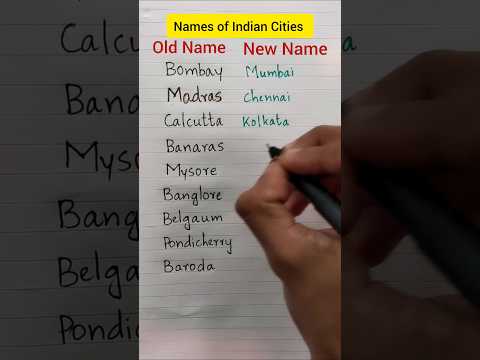 Names of Indian Cities
Old Name New Name
Bombay Mumbai
Madras Chennai
Calcutta Kolkata
Banaras
Mysore
Banglore
Belgaum
Pondicherry
Baroda